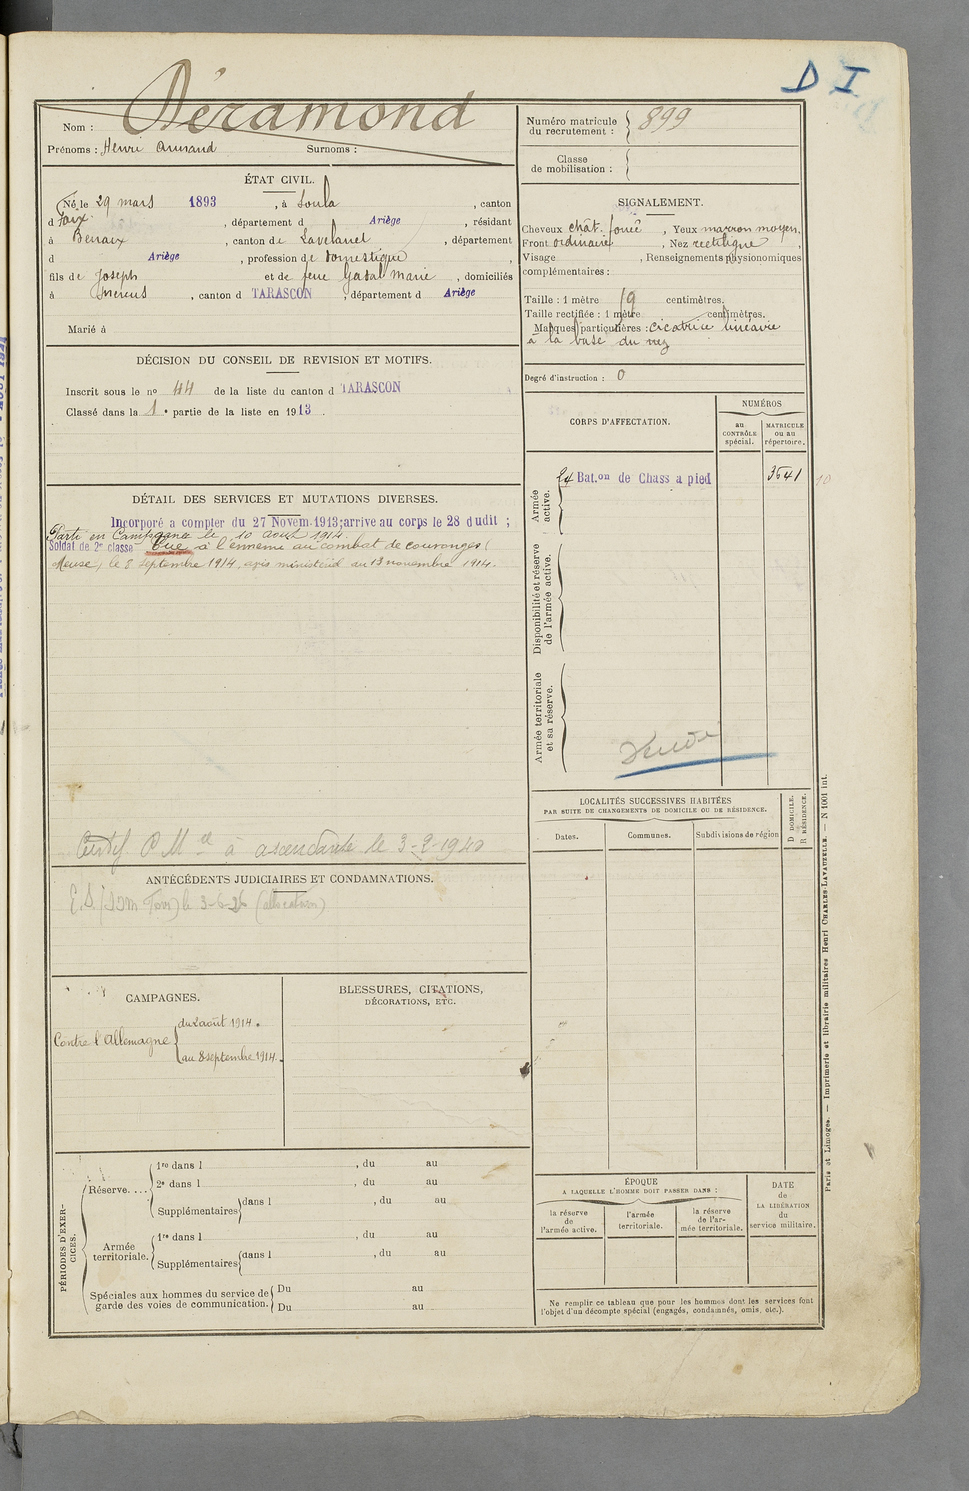 D I
Nom : Déramond
Prénoms : Henri Armand Surnoms :
Numéro matricule du recrutement : 899
Classe de mobilisation :
ÉTAT CIVIL.
Né, le 29 mars 1893, à Soula, canton
d Foix, département d Ariège, résidant
à Benaix, canton de Lavelanet, département
d Ariège, profession de domestique,
fils de Joseph et de feue Gabal Marie, domiciliés
à Mercus, canton d TARASCON, département d Ariège
Marié à
SIGNALEMENT.
Cheveux chât. foncé, Yeux marron moyen,
Front ordinaire, Nez rectiligne,
Visage , Renseignements physionomiques
complémentaires :
Taille : 1 mètre 19 centimètres.
Taille rectifiée : 1 mètre centimètres.
Marques particulières : cicatrice linéaire
à la base du nez
Degré d'instruction : 0
DÉCISION DU CONSEIL DE REVISION ET MOTIFS.
Inscrit sous le no 44 de la liste du canton d TARASCON
Classé dans la 1e partie de la liste en 1913.
DÉTAIL DES SERVICES ET MUTATIONS DIVERSES.
Incorporé a compter du 27 Novem. 1913; arrive au corps le 28 dudit ;
Parti en Campagne le 10 août 1914.
Soldat de 2e classe Tué à l'ennemi au combat de couvonges (
Meuse) le 8 septembre 1914, avis ministériel du 13 novembre 1914.
Certif à ascendante le 3-2-1940
CORPS D'AFFECTATION.
NUMÉROS
au CONTRÔLE spécial.
MATRICULE ou au répertoire.
Armée active.
24 Bat.on de Chass a pied 3641
Disponibilité et réserve de l'armée active.
Armée territoriale et sa réserve.
LOCALITÉS SUCCESSIVES HABITÉES
PAR SUITE DE CHANGEMENTS DE DOMICILE OU DE RÉSIDENCE.
Dates. Communes. Subdivisions de région
D DOMICILE.
R RÉSIDENCE.
ANTÉCÉDENTS JUDICIAIRES ET CONDAMNATIONS.
le 3-6-26 (allocation)
CAMPAGNES.
Contre l'Allemagne
du 2 août 1914.
au 8 septembre 1914.
BLESSURES, CITATIONS,
DÉCORATIONS, ETC.
PÉRIODES D'EXERCICES.
Réserve....
1re dans l , du au
2e dans l , du au
Supplémentaires dans l , du au
Armée territoriale.
1re dans l , du au
Supplémentaires dans l , du au
Spéciales aux hommes du service de
garde des voies de communication.
Du au
Du au
ÉPOQUE
A LAQUELLE L'HOMME DOIT PASSER DANS :
la réserve de l'armée active.
l'armée territoriale.
la réserve de l'armée territoriale.
DATE
de
LA LIBÉRATION
du
service militaire.
Ne remplir ce tableau que pour les hommes dont les services font
l'objet d'un décompte spécial (engagés, condamnés, omis, etc.).
Paris et Limoges. — Imprimerie et librairie militaires Henri CHARLES-LAVAUZELLE. — N 1001 int.